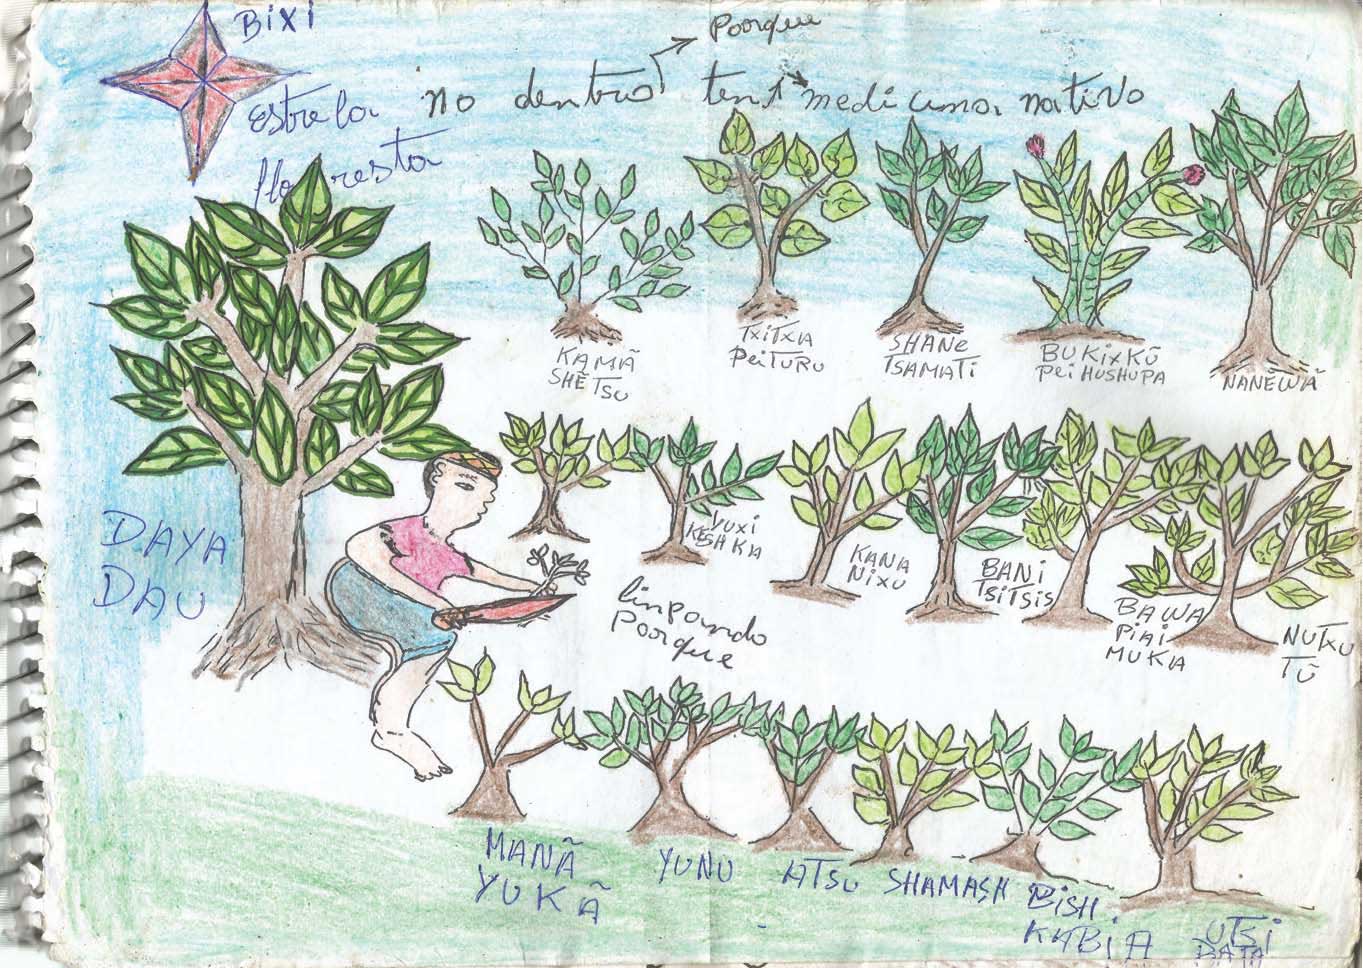 BIXI
Poorque
estrela no dentrio tem medicina nativo
floresta
KAMÃ
SHẼTSU
TXITXIA
PEITURU
SHANE
TSAMATI
BUKIXKŨ
PEI HUSHUPA
NANẼWÃ
DAYA
DAU
YUXI
KESHKIA
KANA
NIXU
BANI
TSITSIS
BAWA
PIAI
MUKA
NUTXU
TŨ
linpando
Porque
MANÃ
YUKÃ
YUNU
ATSU
SHAMASH
BISH
KABIA
UTSI
BATA